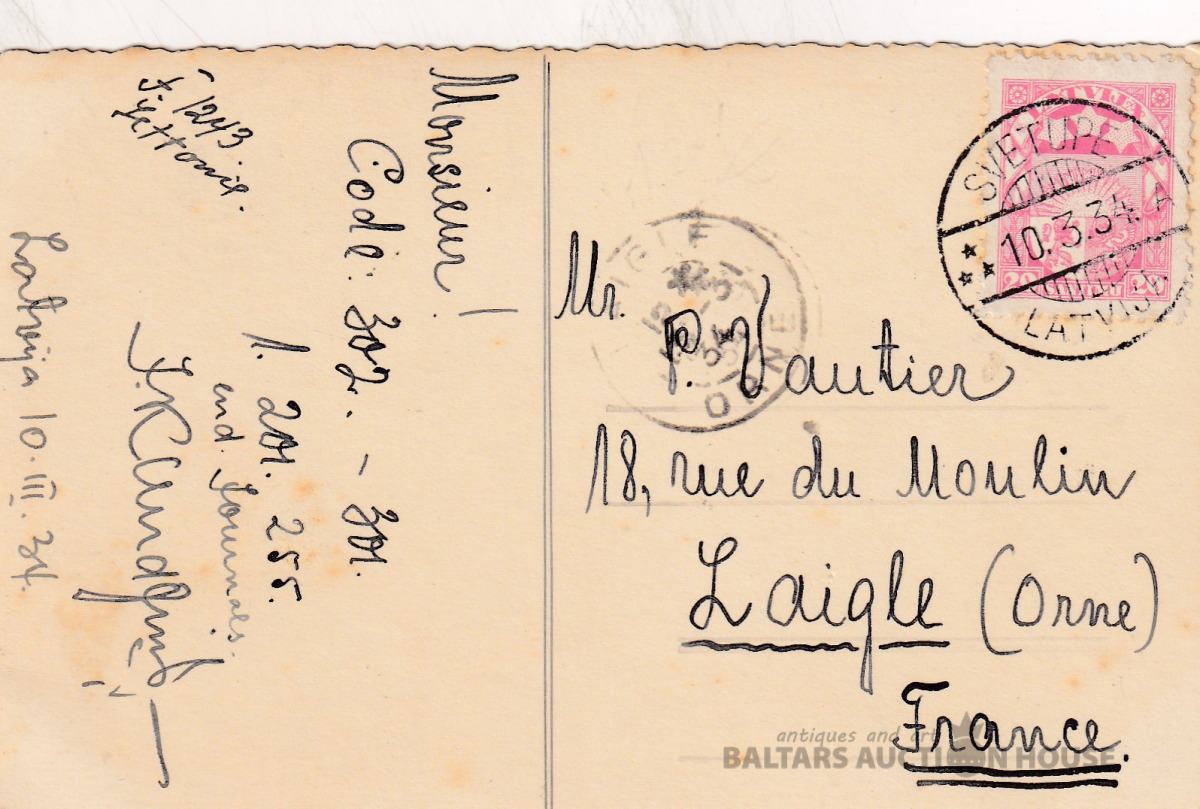 Monsieur!
Code: 302. – 301.
1. 201. 255.
and. Journales.
Latvija 10.III.34.
1243
LATVIJA
20 20
SVETUPE
10.3.34. A
LATVIJA
ORNE
Mr. P. Vautier
18, rue du Moulin
Laigle (Orne)
France.
antiques and art
BALTARS AUCTION HOUSE